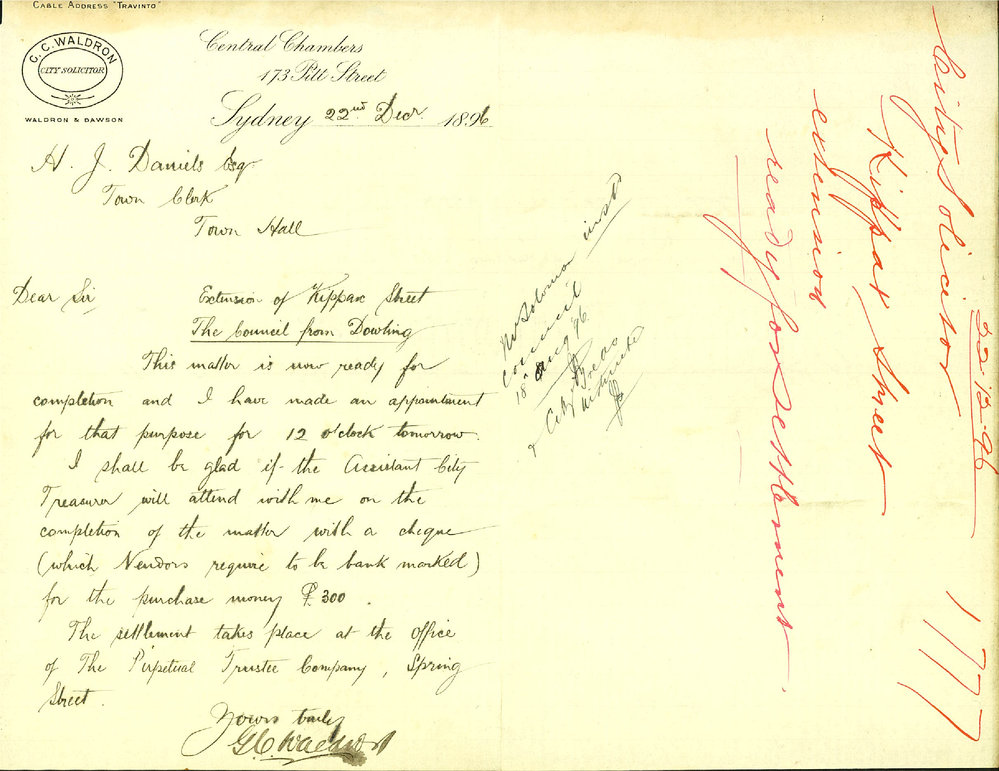 CABLE ADDRESS "TRAVINTO"
G. C. WALDRON
CITY SOLICITOR
WALDRON & DAWSON
Central Chambers
173 Pitt Street
Sydney 22nd Decr. 1896
H. J. Daniels Esq
Town Clerk
Town Hall
Dear Sir
Extension of Kippax Street
The Council from Dowling
This matter is now ready for
completion and I have made an appointment
for that purpose for 12 o'clock tomorrow.
I shall be glad if the Assistant City
Treasurer will attend with me on the
completion of the matter with a cheque
(which Vendors require to be bank marked)
for the purchase money £300.
The settlement takes place at the office
of The Perpetual Trustee Company, Spring
Street.
Yours truly
G. C. Waldron
Council
18 Aug 96.
City Treas
22-12-96
City Solicitor
Kippax Street
extension
ready for settlement.
1777